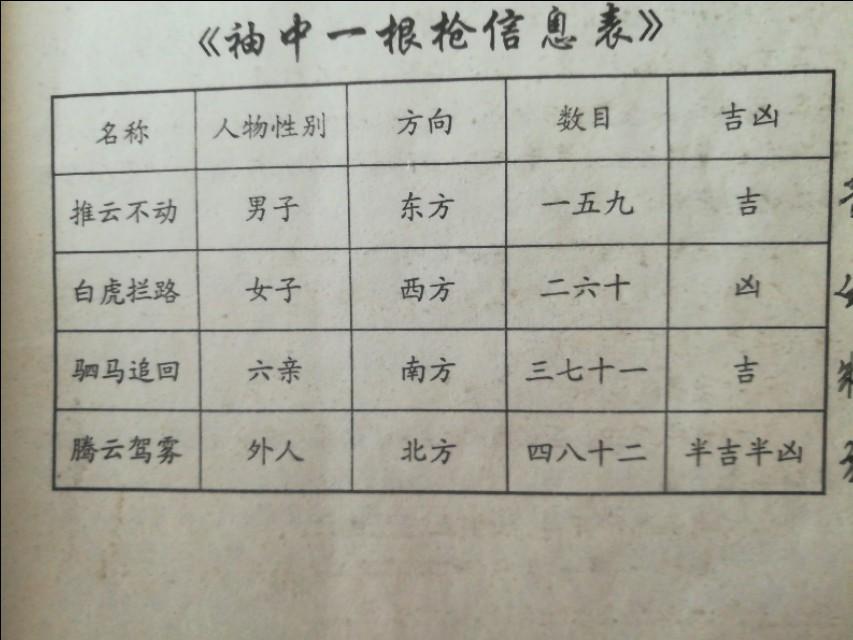 《袖中一根枪信息表》
名称 人物性别 方向 数目 吉凶
推云不动 男子 东方 一五九 吉
白虎拦路 女子 西方 二六十 凶
驷马追回 六亲 南方 三七十一 吉
腾云驾雾 外人 北方 四八十二 半吉半凶